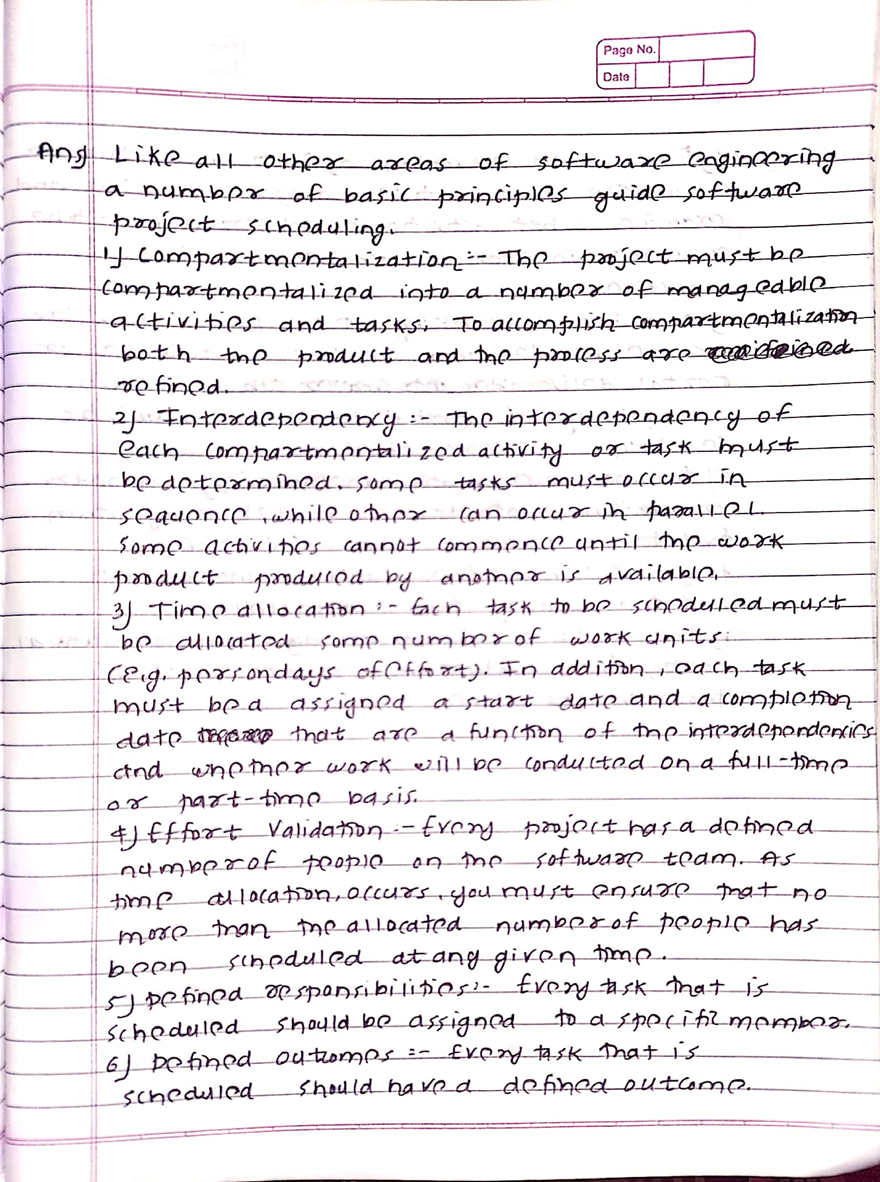 Page No.
Date
Ans Like all other areas of software engineering
a number of basic principles guide software
project scheduling.
1) Compartmentalization :- The project must be
compartmentalized into a number of manageable
activities and tasks. To accomplish compartmentalization
both the product and the process are
refined.
2) Interdependency :- The interdependency of
each compartmentalized activity or task must
be determined. Some tasks must occur in
sequence, while other can occur in parallel.
Some activities cannot commence until the work
product produced by another is available.
3) Time allocation :- Each task to be scheduled must
be allocated some number of work units
(e.g. person days of effort). In addition, each task
must be a assigned a start date and a completion
date that are a function of the interdependencies
and whether work will be conducted on a full-time
or part-time basis.
4) Effort Validation :- Every project has a defined
number of people on the software team. As
time allocation, occurs, you must ensure that no
more than the allocated number of people has
been scheduled at any given time.
5) Defined responsibilities :- Every task that is
scheduled should be assigned to a specific member.
6) Defined outcomes :- Every task that is
scheduled should have a defined outcome.